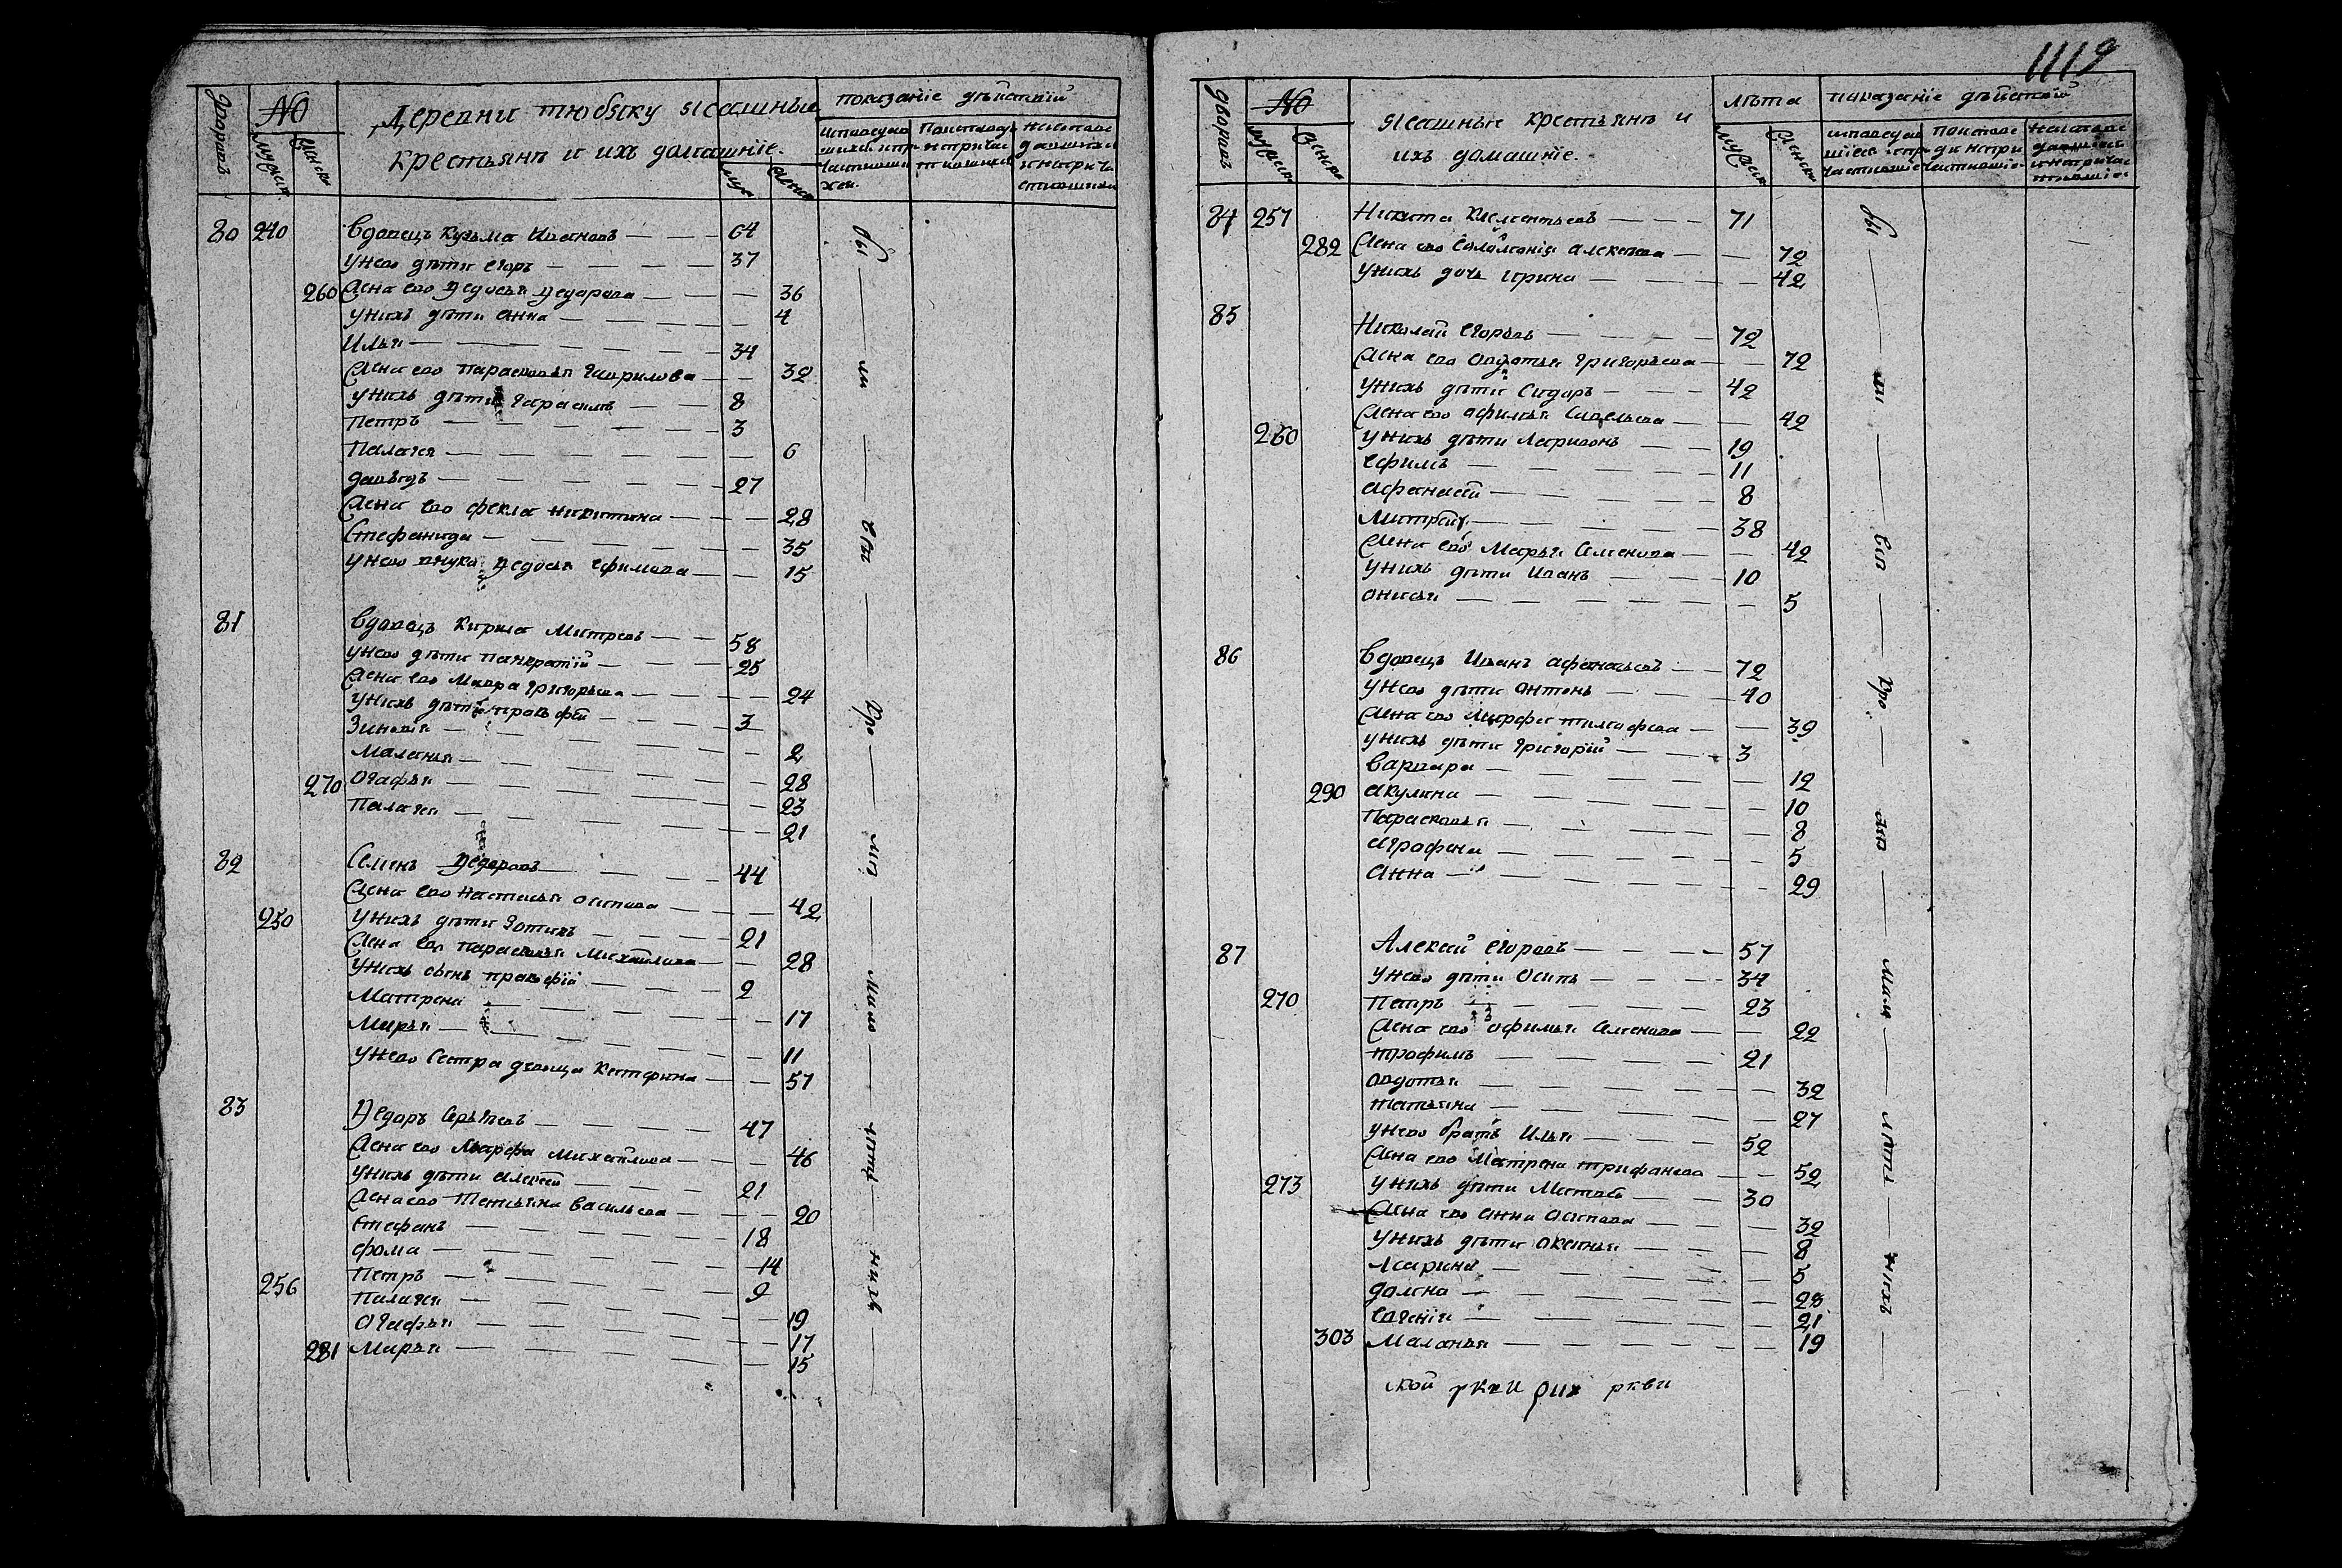 1119
дворовъ
No
мужеск
женска
Деревни тюбяку ясашные
крестьянъ и ихъ домашніе.
муж
женск
показаніе дѣйствій
80 240 вдовецъ Кузьма Ивановъ — — — 64
у нево дѣти Егоръ — — — — 37
260 Жена ево Ѳедосья Ѳедорова — — — 36
у нихъ дѣти Анна — — — — 4
Илья — — — — — 34
Жена ево Парасковья Гаврилова — — 32
у нихъ дѣти Гарасимъ — — 8
Петръ — — — — — 3
Палагея — — — — — 6
Давыдъ — — — — — 27
Жена ево Фекла Никитина — — — 28
Стефанида — — — — — 35
у нево внука Ѳедосья Ефимова — — 15
81 вдовецъ Кирила Митревъ — — 58
у нево дѣти Панкратій — — — 25
Жена ево Мавра Григорьева — — — 24
у нихъ дѣти Прокофей — — — 3
Зиновія — — — — — 2
Маланья — — — — — 28
270 Огафья — — — — — 23
Палагея — — — — — 21
82 Семенъ Ѳедоровъ — — — 44
Жена ево Настасья Осипова — — — 42
250 у нихъ дѣти Зотикъ — — — 21
Жена ево Парасковья Михайлова — — 28
у нихъ сынъ Прокофій — — — 2
Матрена — — — — — 17
Марья — — — — — 11
у нево Сестра девица Катерина — — 57
83 Ѳедоръ Сергѣевъ — — — 47
Жена ево Марфа Михайлова — — — 46
у нихъ дѣти Алексей — — — 21
Жена ево Татьяна Васильева — — — 20
Стефанъ — — — — — 18
Фома — — — — — 14
256 Петръ — — — — — 9
Палагея — — — — — 19
Огафья — — — — — 17
281 Марья — — — — — 15
бы — ли — всѣ — Кро — мѣ — мало — лѣтц — нихъ
дворовъ
No
мужеск
женска
Ясашные крестьянъ и
ихъ домашніе.
лѣта
мужеск
женска
показаніе дѣйствій
84 257 Никита Клементьевъ — — — 71
282 Жена ево Соломонія Алексеева — — 72
у нихъ дочь Ирина — — — — 42
85 Николай Егоровъ — — — — 72
Жена ево Овдотья Григорьева — — 72
у нихъ дѣти Сидоръ — — — 42
Жена ево Афимья Савельева — — 42
260 у нихъ дѣти Ларивонъ — — 19
Ефимъ — — — — — 11
Афанасей — — — — 8
Митрей — — — — — 38
Жена ево Марья Семенова — — 42
у нихъ дѣти Иванъ — — — 10
Анисья — — — — — 5
86 вдовецъ Иванъ Афанасьевъ — — 72
у нево дѣти Антонъ — — — 40
Жена ево Марфа Тимофеева — — 39
у нихъ дѣти Григорій — — — 3
Варвара — — — — — 12
290 Акулина — — — — — 10
Парасковья — — — — — 8
Аграфена — — — — — 5
Анна — — — — — 29
87 Алексей Егоровъ — — — — 57
у нево дѣти Осипъ — — — 34
270 Петръ — — — — — 23
Жена ево Афимья Семенова — — 22
Трофимъ — — — — — 21
Овдотья — — — — — 32
Татьяна — — — — — 27
у нево братъ Илья — — — 52
Жена ево Матрена Трифанова — — 52
273 у нихъ дѣти Матвей — — 30
Жена ево Анна Осипова — — — 32
у нихъ дѣти Оксинья — — — 8
Марина — — — — — 5
Домна — — — — — 28
Евгенія — — — — — 21
303 Маланья — — — — — 19
бы — ли — всѣ — Кро — мѣ — мало — лѣтц — нихъ